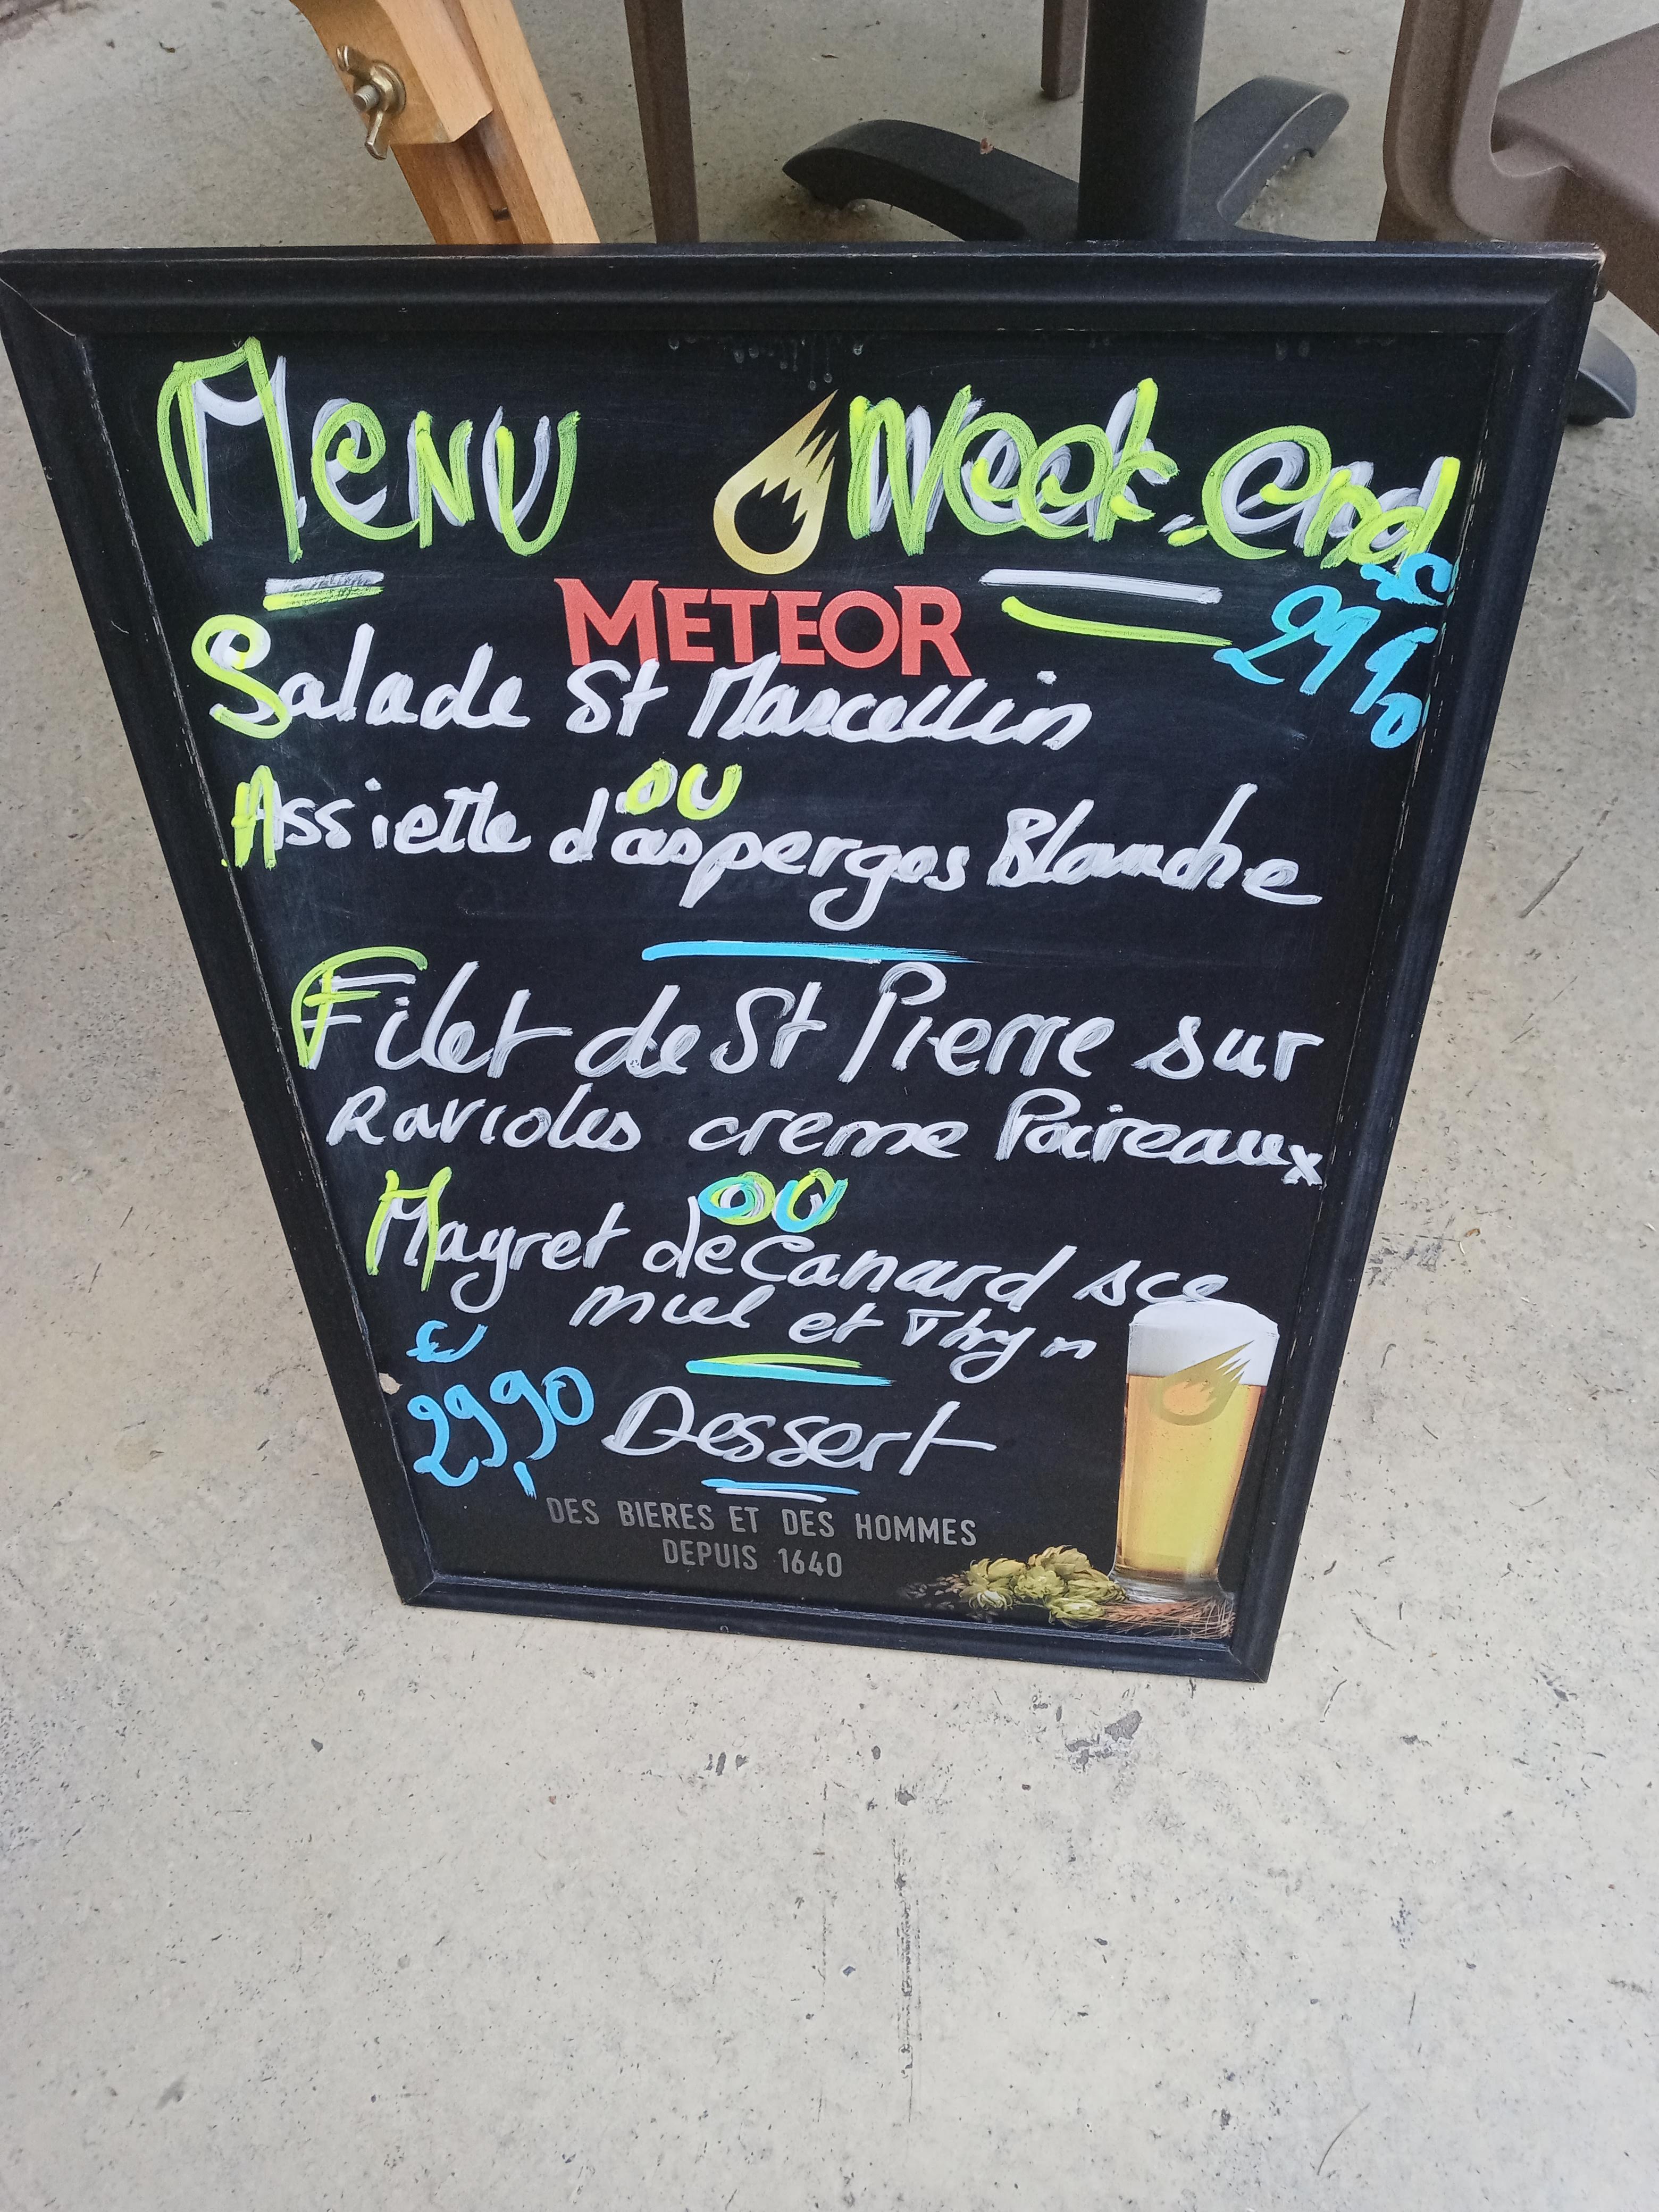 Menu Week-end
METEOR
29,90 €
Salade St Marcellin
ou
Assiette d'asperges Blanche
Filet de St Pierre sur
Ravioles creme Poireaux
ou
Magret de Canard sce
miel et Thyn
€
29,90 Dessert
DES BIERES ET DES HOMMES
DEPUIS 1640